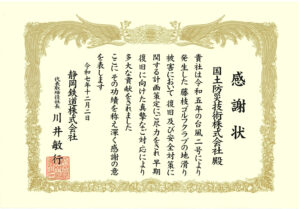 感謝状
国土防災技術株式会社 殿
貴社は令和五年の台風二号により
発生した藤枝ゴルフクラブの地滑り
被害において 復旧及び安全対策に
関する計画策定にご尽力をされ 早期
復旧に向けた真摯なご対応により
多大な貢献をされました
ここにその功績を称え深く感謝の意
を表します
令和七年十二月二日
静岡鉄道株式会社
代表取締役社長
川井敏行